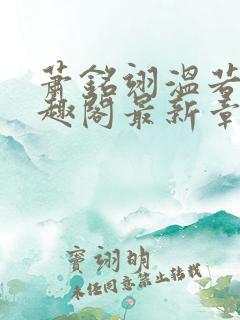 萧铭翊温若
趣阁最新章
窦翊明
未经同意禁止转载